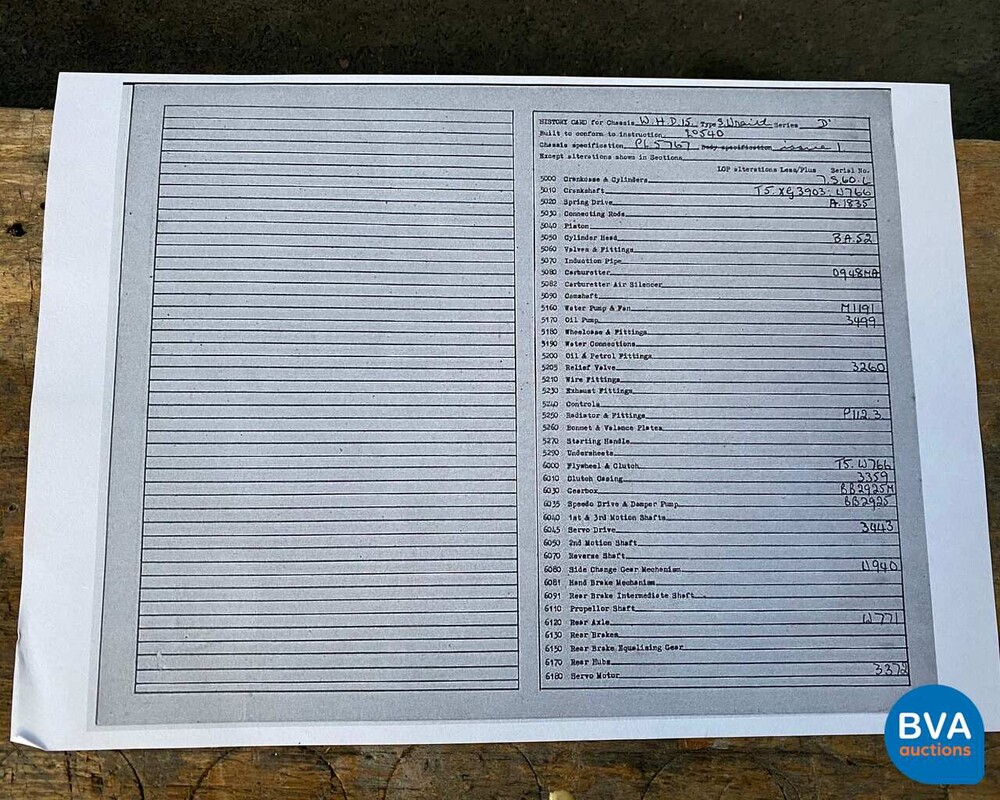 HISTORY CARD for Chassis W.H.D.15. Type S.Wraith Series "D"
Built to conform to instruction 20540
Chassis specification PL5767 Body specification issue 1
Except alterations shown in Sections
LOP alterations Less/Plus Serial No.
5000 Crankcase & Cylinders 7.S.60.L
5010 Crankshaft T5. XG3903. W766
5020 Spring Drive A.1835
5030 Connecting Rods
5040 Piston
5050 Cylinder Head BA.52
5060 Valves & Fittings
5070 Induction Pipe
5080 Carburetter D948MA
5082 Carburetter Air Silencer
5090 Camshaft
5160 Water Pump & Fan M1191
5170 Oil Pump 3499
5180 Wheelcase & Fittings
5190 Water Connections
5200 Oil & Petrol Fittings
5205 Relief Valve 3260
5210 Wire Fittings
5230 Exhaust Fittings
5240 Controls
5250 Radiator & Fittings P112.3
5260 Bonnet & Valance Plates
5270 Starting Handle
5290 Undersheets
6000 Flywheel & Clutch T5. W766
6010 Clutch Casing 3359
6030 Gearbox BB2925M
6035 Speedo Drive & Damper Pump BB2925
6040 1st & 3rd Motion Shafts
6045 Servo Drive 3443
6050 2nd Motion Shaft
6070 Reverse Shaft
6080 Side Change Gear Mechanism W940
6081 Hand Brake Mechanism
6091 Rear Brake Intermediate Shaft
6110 Propellor Shaft
6120 Rear Axle W771
6130 Rear Brakes
6150 Rear Brake Equalising Gear
6170 Rear Hubs
6180 Servo Motor 3372
BVA
auctions